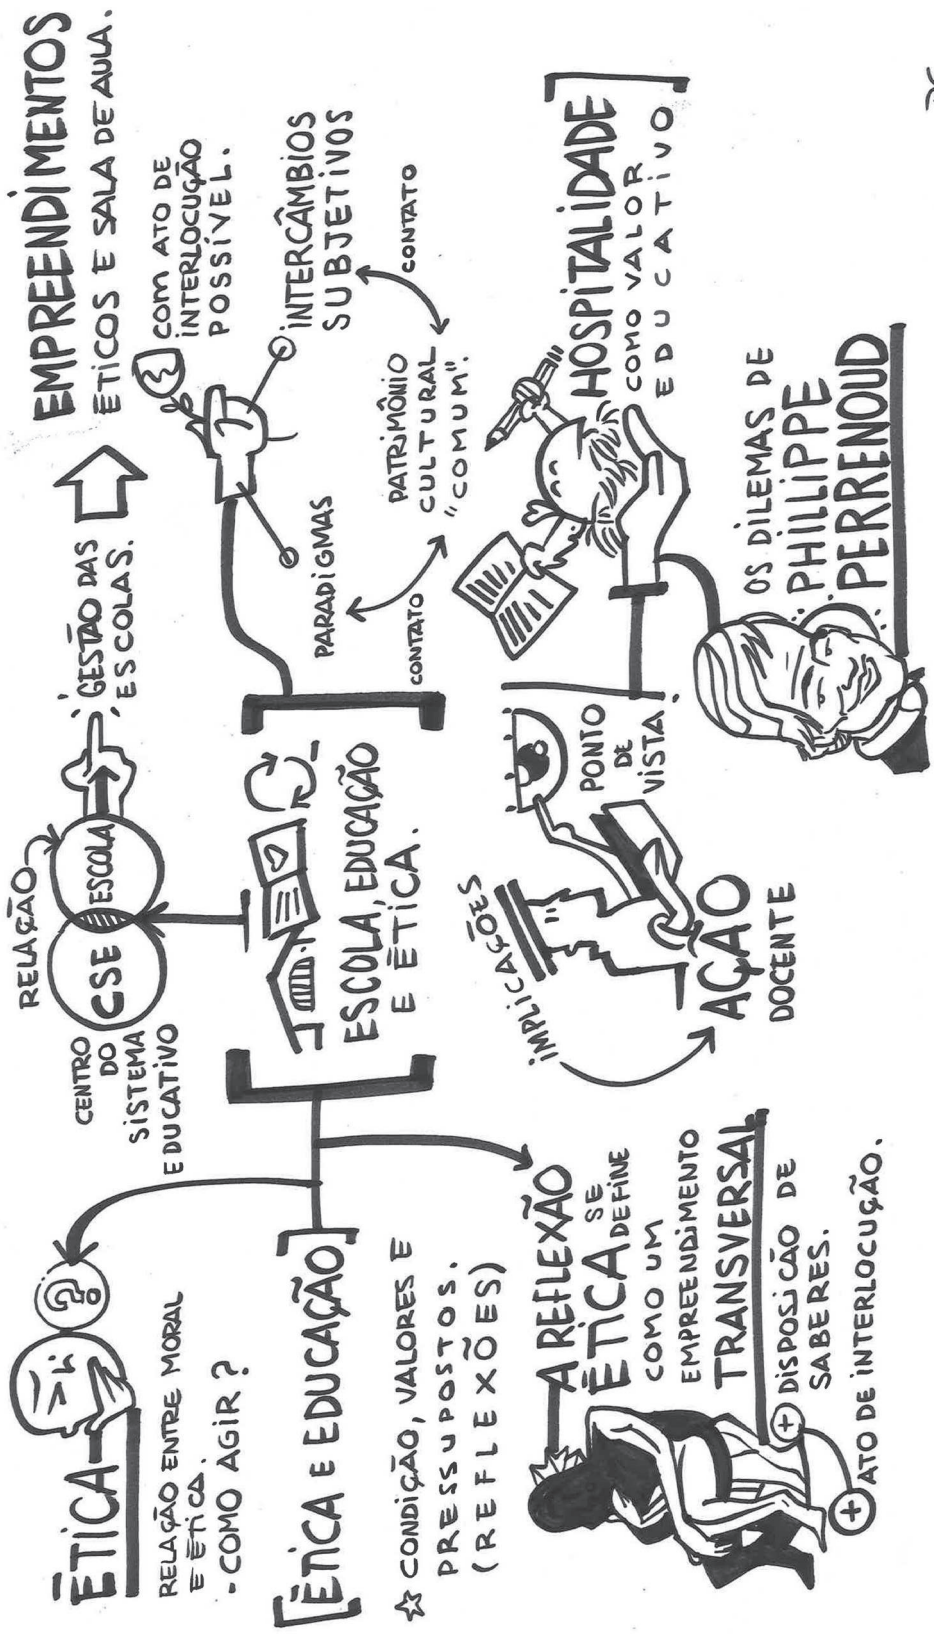 ÉTICA
RELAÇÃO ENTRE MORAL
E ÉTICA.
- COMO AGIR?
?
[ÉTICA E EDUCAÇÃO]
☆ CONDIÇÃO, VALORES E
PRESSUPOSTOS.
(REFLEXÕES)
A REFLEXÃO
ÉTICA SE
DEFINE
COMO UM
EMPREENDIMENTO
TRANSVERSAL
+ DISPOSICÃO DE
SABERES.
+ ATO DE INTERLOCUÇÃO.
RELAÇÃO
CSE
ESCOLA
CENTRO
DO
SISTEMA
EDUCATIVO
GESTÃO DAS
ESCOLAS.
ESCOLA, EDUCAÇÃO
E ÉTICA.
EMPREENDIMENTOS
ÉTICOS E SALA DE AULA.
COM ATO DE
INTERLOCUÇÃO
POSSÍVEL.
INTERCÂMBIOS
SUBJETIVOS
PARADIGMAS
CONTATO
PATRIMÔNIO
CULTURAL
"COMUM".
CONTATO
IMPLICAÇÕES
AÇÃO
DOCENTE
PONTO
DE
VISTA!
[HOSPITALIDADE]
COMO VALOR
EDUCATIVO
OS DILEMAS DE
PHILLIPPE
PERRENOUD